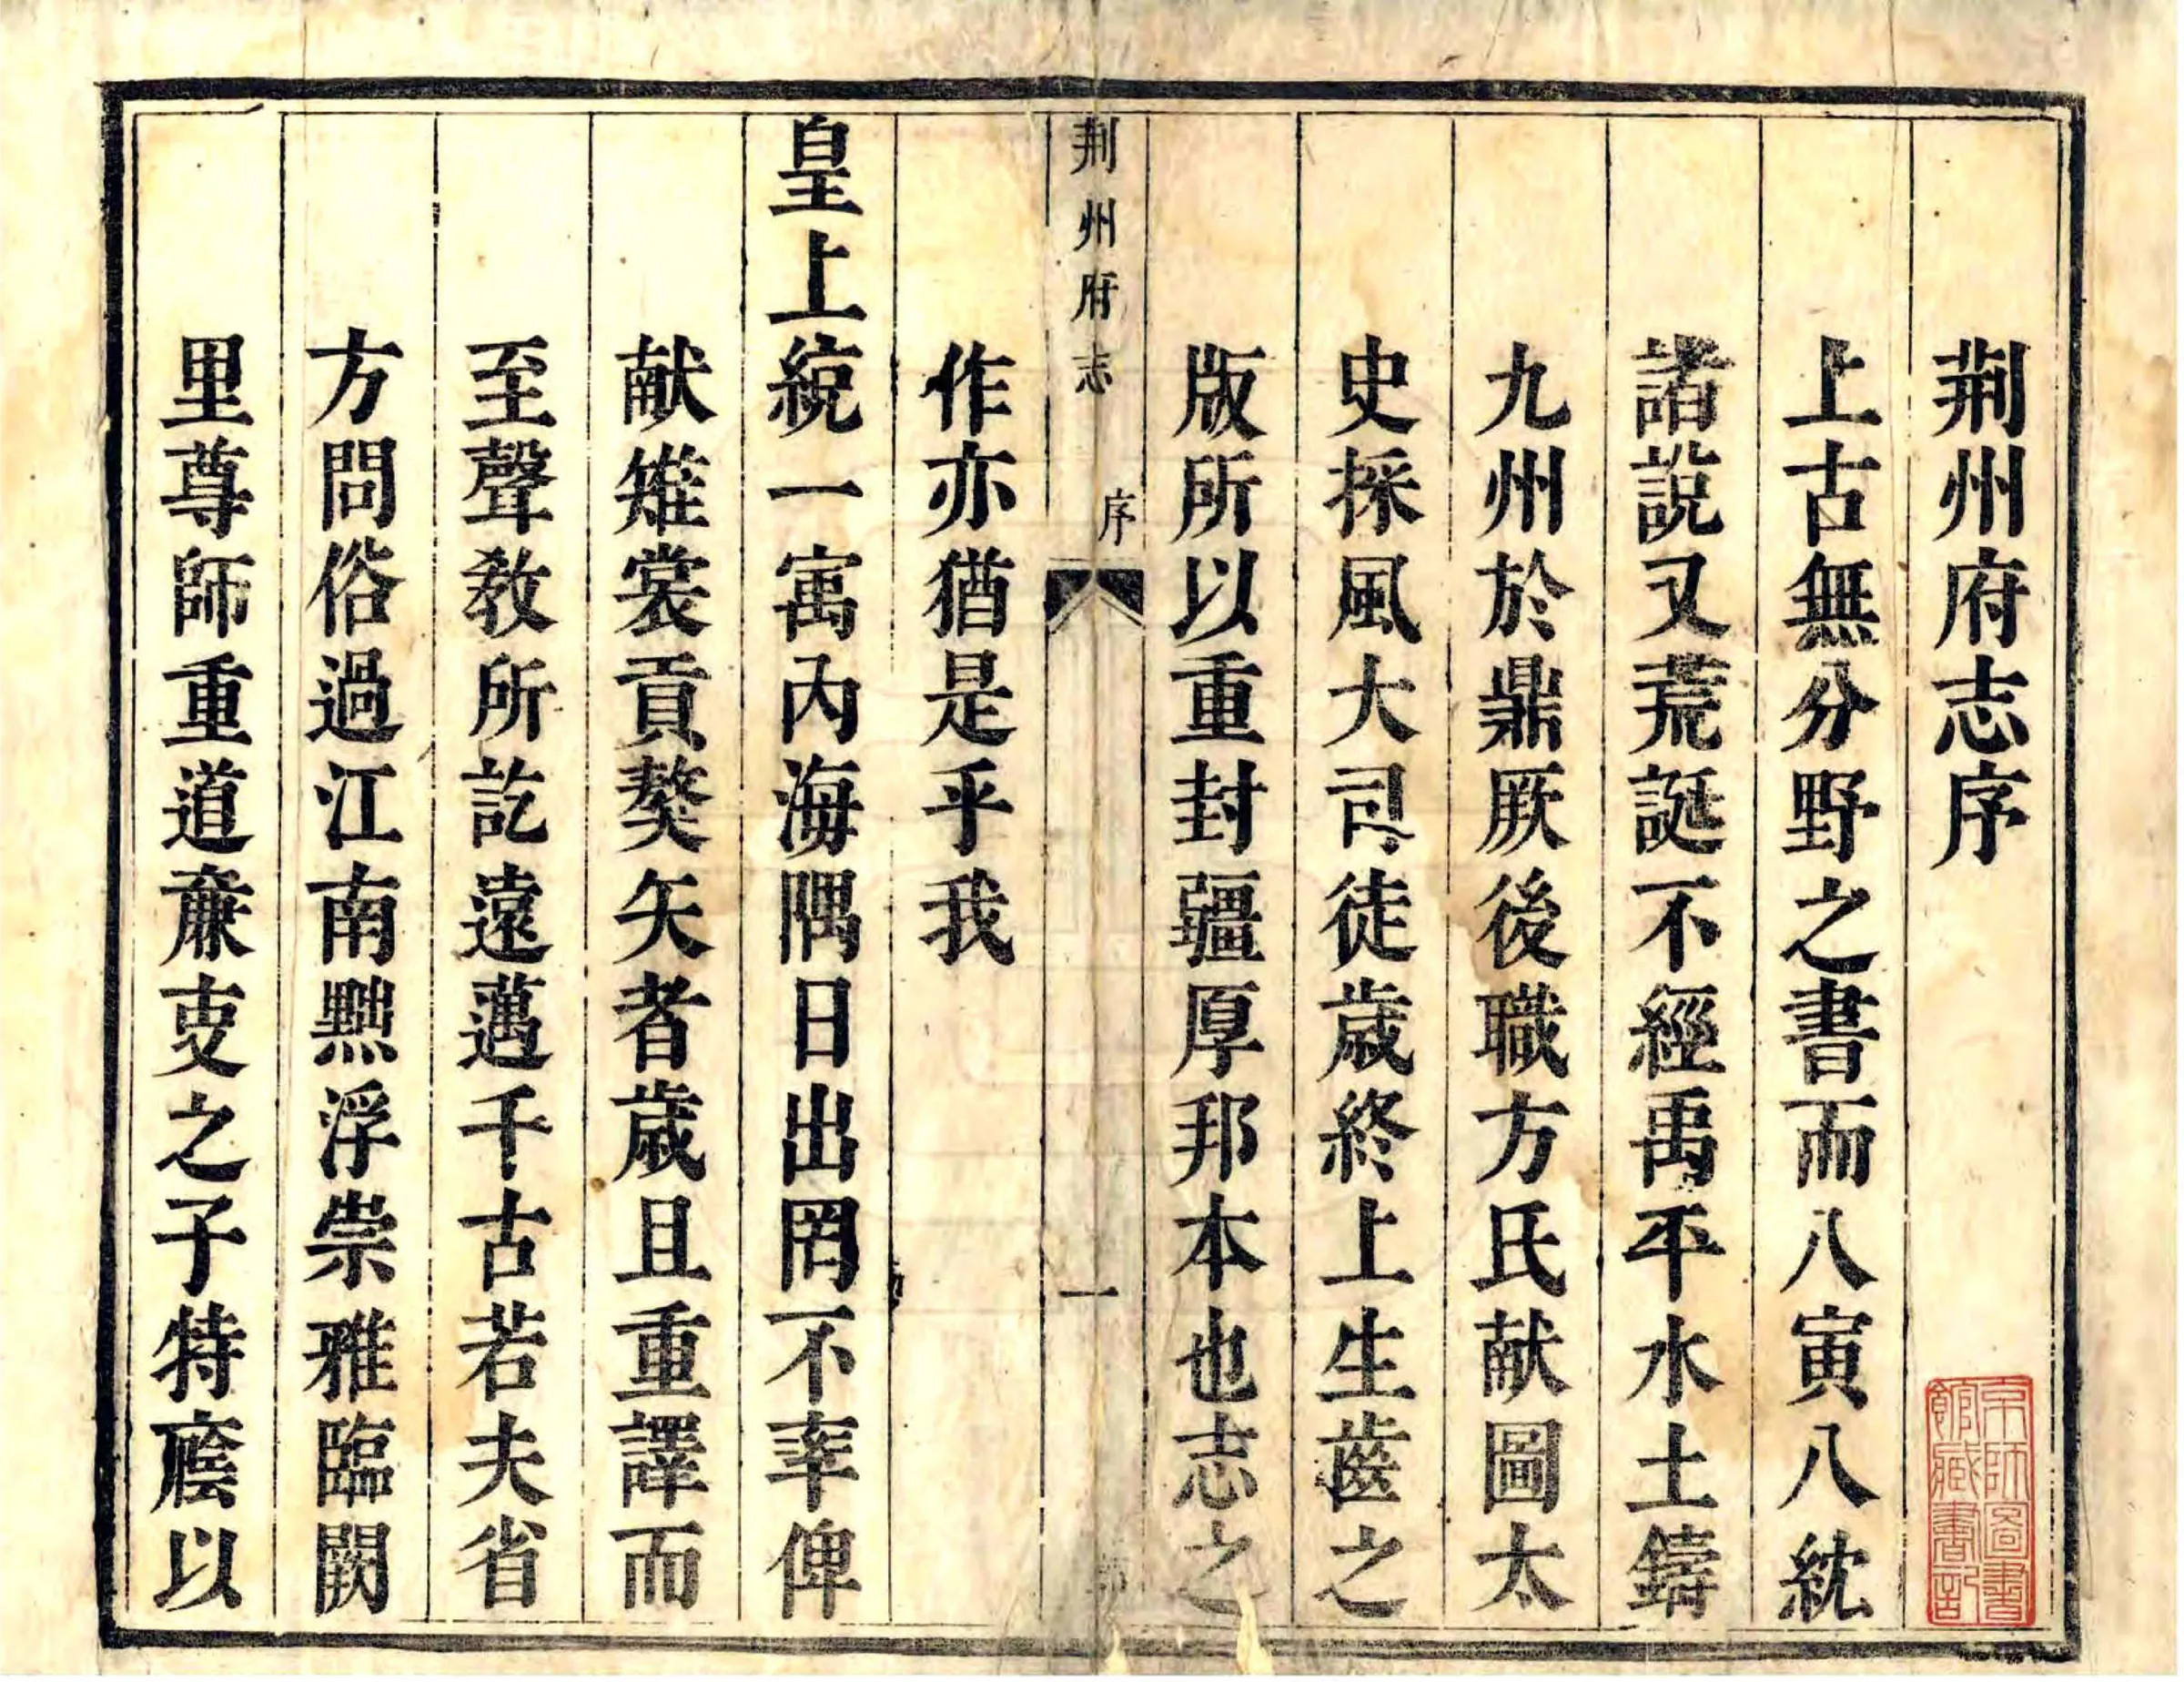 荆州府志序
上古無分野之書而八寅八紞
諸説又荒誕不經禹平水土鑄
九州於鼎厥後職方氏献圖太
史採風大司徒歲終上生齒之
版所以重封疆厚邦本也志之
荆州府志 序 一
作亦猶是乎我
皇上統一寓內海隅日出罔不率俾
献雉裳貢楛矢者歲且重譯而
至聲敎所訖遠邁千古若夫省
方問俗過江南黜浮崇雅臨闕
里尊師重道廉吏之子特廕以
京師圖書
館藏書記